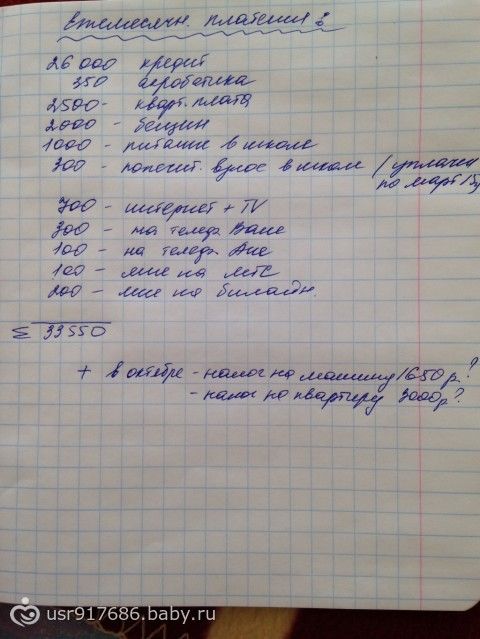 Ежемесячн. платежи:
26 000 кредит
350 акробатика
2500- кварт. плата
2000 - бензин
1000 - питание в школе
300 - попечит. взнос в школе (уплачен
по март 15)
700 - интернет + TV
300 - на телеф. Ване
100 - на телеф. Ане
100 - мне на МТС
200 - мне на билайн.
Σ 33550
+ в октябре - налог на машину 1650 р.?
- налог на квартиру 3000р?
usr917686.baby.ru